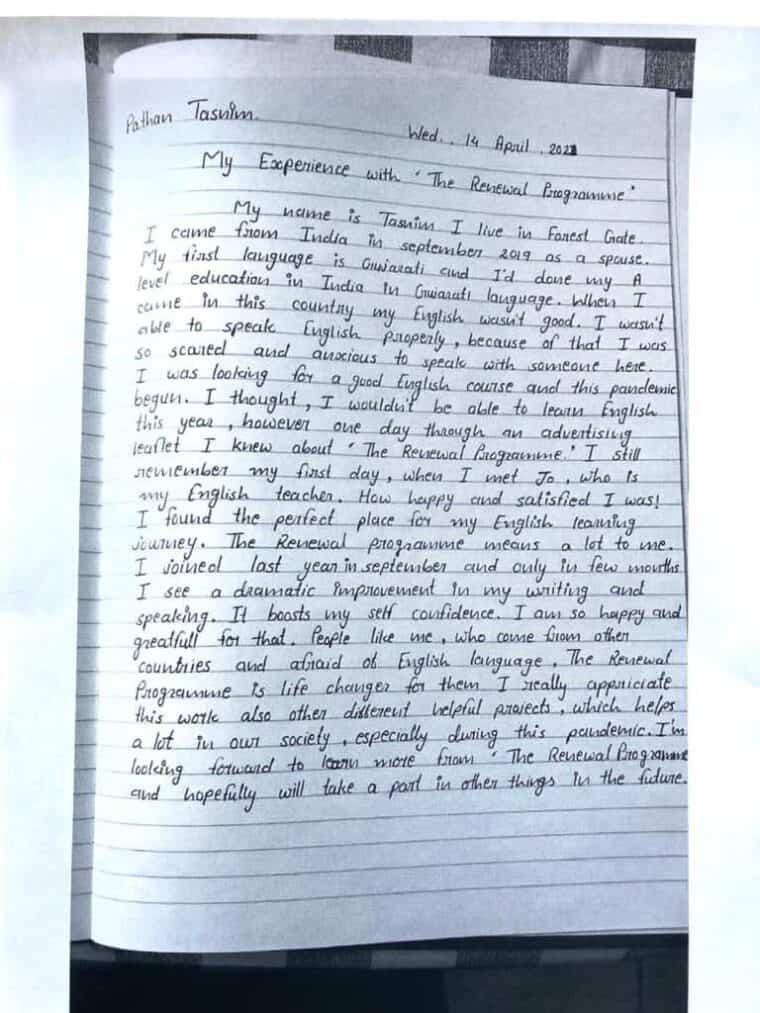 Pathan Tasnim.
Wed., 14 April. 2021
My Experience with 'The Renewal Programme'
My name is Tasnim I live in Forest Gate.
I came from India in september 2019 as a spouse.
My first language is Gujarati and I'd done my A
level education in India in Gujarati language. When I
came in this country my English wasn't good. I wasn't
able to speak English properly, because of that I was
so scared and anxious to speak with someone here.
I was looking for a good English course and this pandemic
begun. I thought, I wouldn't be able to learn English
this year, however one day through an advertising
leaflet I knew about 'The Renewal Programme.' I still
remember my first day, when I met Jo, who is
my English teacher. How happy and satisfied I was!
I found the perfect place for my English learning
journey. The Renewal programme means a lot to me.
I joined last year in september and only in few months
I see a dramatic improvement in my writing and
speaking. It boosts my self confidence. I am so happy and
greatfull for that. People like me, who come from other
countries and afraid of English language, The Renewal
Programme is life changer for them I really appriciate
this work also other different helpful projects, which helps
a lot in our society, especially during this pandemic. I'm
looking forward to learn more from 'The Renewal Programme
and hopefully will take a part in other things in the future.